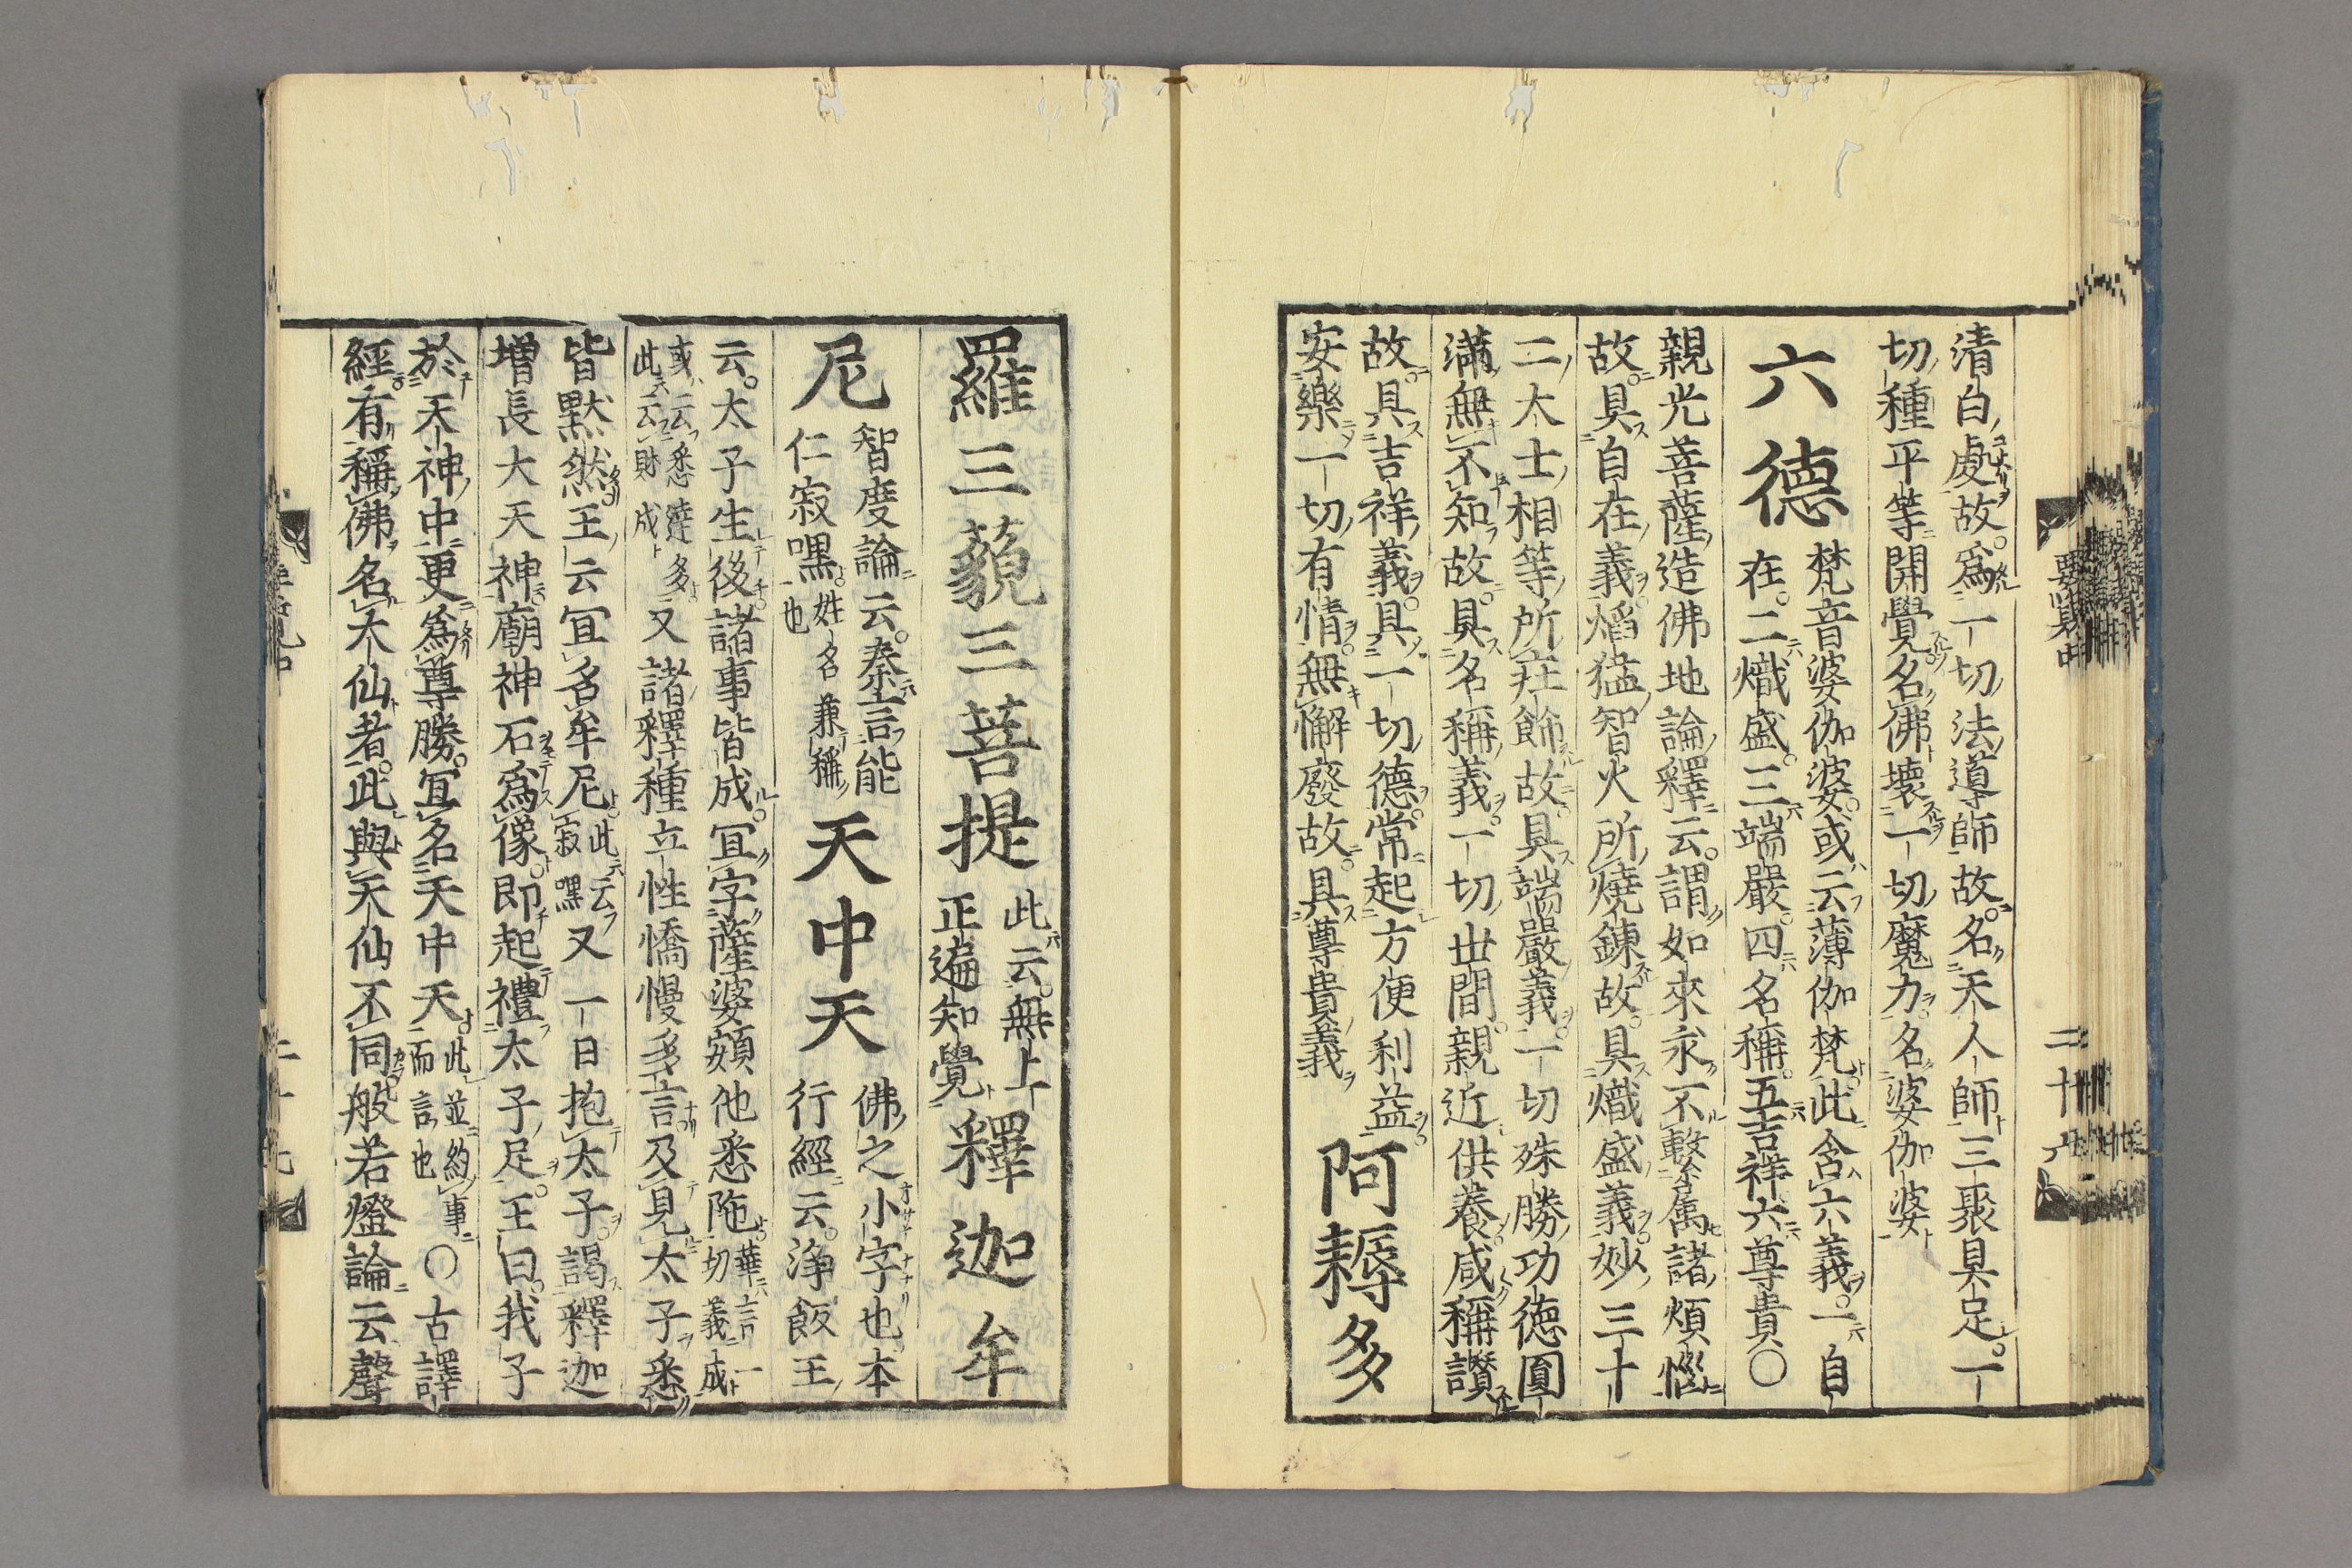 清白處故。爲一切法導師故。名天人師三聚具足。一
切種平等開覺名佛壊一切魔力。名婆伽婆
六德
梵音婆伽婆。或云薄伽梵。此含六義。一自
在。二熾盛。三端嚴。四名稱。五吉祥。六尊貴〇
親光菩薩造佛地論釋云。謂如來永不繫属諸煩惱
故。具自在義。焰猛智火所燒錬故。具熾盛義。妙三十
二大士相等所荘飾故。具端嚴義。一切殊勝功德圓
滿無不知故。具名稱義。一切世間親近供養咸稱讃
故。具吉祥義。具一切德。常起方便利益。
安樂一切有情。無懈廢故。具尊貴義
阿耨多
羅三藐三菩提
此云。無上
正遍知覺
釋迦牟
尼
智度論云。秦言能
仁寂嘿
姓名兼稱
也
天中天
佛之小字也本
行經云。淨飯王
云。太子生後。諸事皆成。冝字薩婆頞他悉陁
華言一
切義成
或云悉達多
此云財成
又諸釋種立性憍慢多言及見太子悉
皆黙然王云冝名牟尼
此云
寂嘿
又一日抱太子。謁釋迦
増長大天神廟神石爲像。即起禮太子足。王曰。我子
於天神中更爲尊勝。冝名天中天
此並約事
而言也
〇古譯
經。有稱佛名大仙者。此與天仙不同般若燈論云聲
要覧中
二十